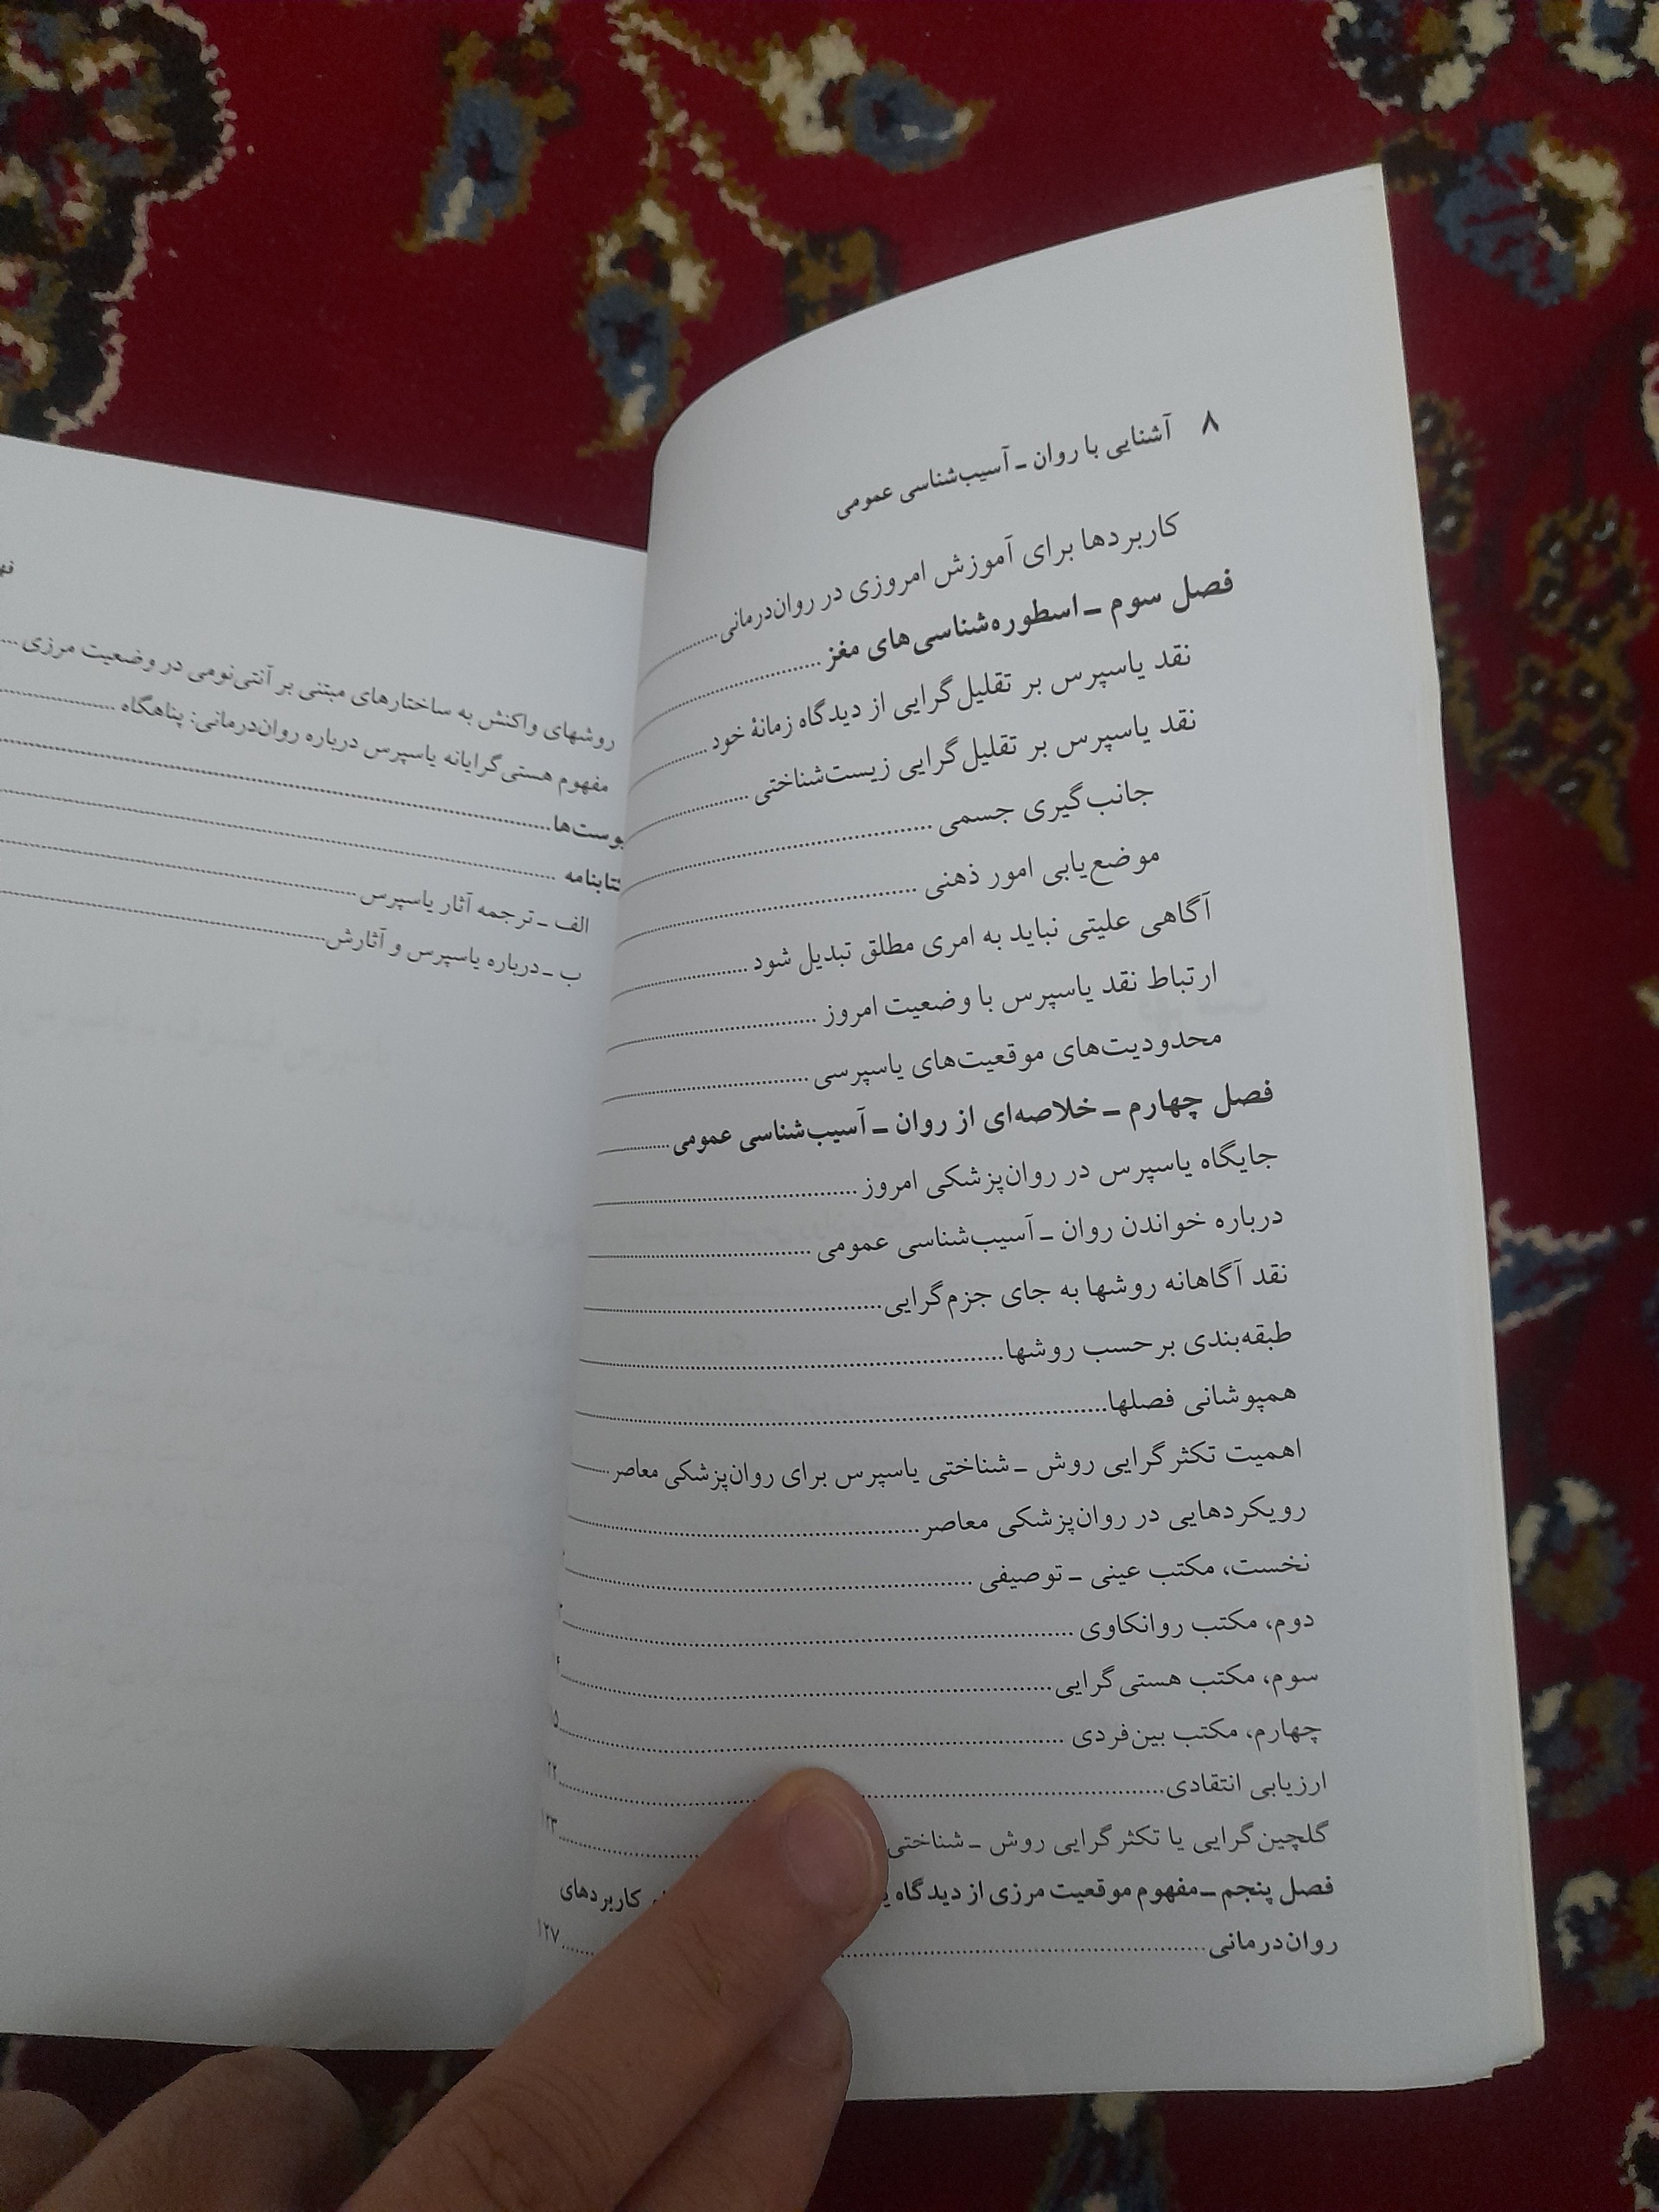 ۸ آشنایی با روان ـ آسیب‌شناسی عمومی
کاربردها برای آموزش امروزی در روان‌درمانی
فصل سوم ـ اسطوره‌شناسی‌های مغز
نقد یاسپرس بر تقلیل‌گرایی از دیدگاه زمانهٔ خود
نقد یاسپرس بر تقلیل‌گرایی زیست‌شناختی
جانب‌گیری جسمی
موضع‌یابی امور ذهنی
آگاهی علیتی نباید به امری مطلق تبدیل شود
ارتباط نقد یاسپرس با وضعیت امروز
محدودیت‌های موقعیت‌های یاسپرسی
فصل چهارم ـ خلاصه‌ای از روان ـ آسیب‌شناسی عمومی
جایگاه یاسپرس در روان‌پزشکی امروز
درباره خواندن روان ـ آسیب‌شناسی عمومی
نقد آگاهانه روشها به جای جزم‌گرایی
طبقه‌بندی بر حسب روشها
همپوشانی فصلها
اهمیت تکثرگرایی روش ـ شناختی یاسپرس برای روان‌پزشکی معاصر
رویکردهایی در روان‌پزشکی معاصر
نخست، مکتب عینی ـ توصیفی
دوم، مکتب روانکاوی
سوم، مکتب هستی‌گرایی
چهارم، مکتب بین‌فردی
ارزیابی انتقادی
گلچین‌گرایی یا تکثرگرایی روش ـ شناختی ۱۲۳
فصل پنجم ـ مفهوم موقعیت مرزی از دیدگاه کاربردهای
روان‌درمانی ۱۲۷
روشهای واکنش به ساختارهای مبتنی بر آنتی‌نومی در وضعیت مرزی
مفهوم هستی‌گرایانه یاسپرس درباره روان‌درمانی: پناهگاه
الف ـ ترجمه آثار یاسپرس
ب ـ درباره یاسپرس و آثارش